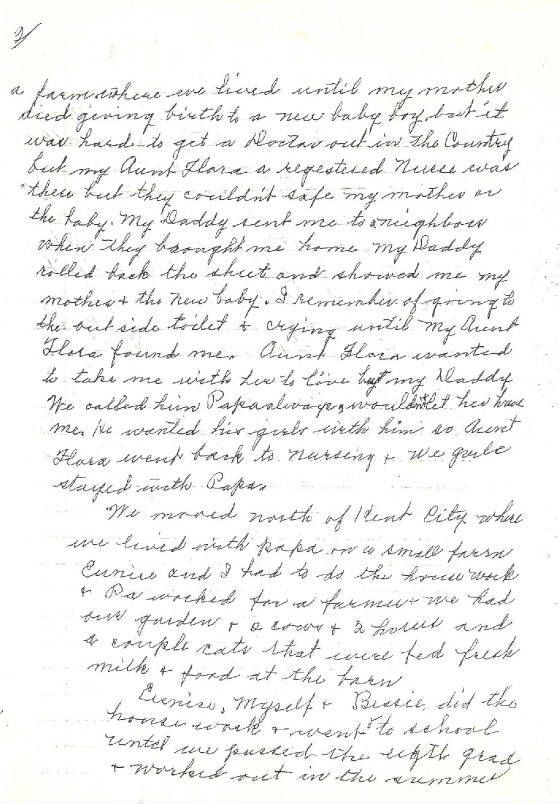 2/
a farm where we lived until my mother
died giving birth to a new baby boy, but it
was hard to get a Doctor out in the Country
but my Aunt Flora a regestered Nurse was
there but they couldn't safe my mother or
the baby. My Daddy sent me to a neighbors
when they brought me home my Daddy
rolled back the sheet and showed me my
mother & the new baby. I remember of going to
the out side toilet & crying until my Aunt
Flora found me. Aunt Flora wanted
to take me with her to live but my Daddy
We called him Papa always, wouldn't let her have
me. He wanted his girls with him so Aunt
Flora went back to nursing & we girls
stayed with Papa.
We moved north of Kent City where
we lived with papa on a small farm
Eunice and I had to do the house work
& Pa worked for a farmer & we had
our garden & 2 cows & 2 horses and
a couple cats that were fed fresh
milk & food at the barn
Eunice, Myself & Bessie, did the
house work & went to school
until we passed the eigth grad
& worked out in the summer